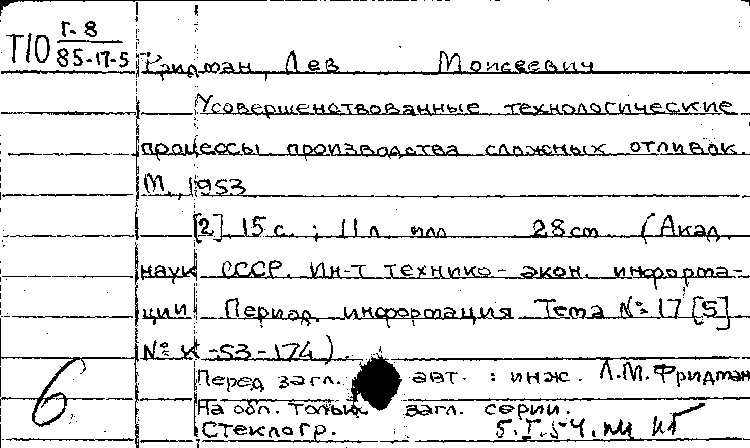 Т10 Г-8
85-17-5
Фридман, Лев Моисеевич
Усовершенствованные технологические
процессы производства сложных отливок.
М., 1953
[2], 15 с. ; 11 л. илл. 28 см. (Акад.
наук СССР. Ин-т технико-экон. информа-
ции. Период. информация Тема № 17 [5]
№ И-53-174)
Перед загл. авт. : инж. Л.М. Фридман
На обл. только загл. серии.
Стеклогр. 5.I.54.
6